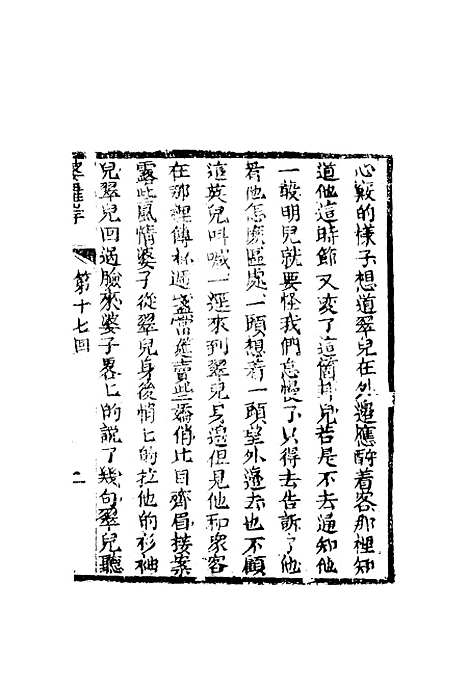 心皎的樣子想道翠兒在外邊應酧着客那裡知
道他這時節又变了這箇卦兒若是不去通知他
一般明兒就要怪我們怠慢了只得去告訴了他
看他怎麽區处一頭想着一頭望外邊去也不顧
這英兒呌喊一逕來到翠兒身邊但見他和衆客
在那裡傳杯遞盞當筵賣些嬌俏比目齊眉接案
露些風情婆子從翠兒身後悄匕的拉他的衫袖
兒翠兒回過臉來婆子畧匕的說了幾句翠兒聽
第十七回 二